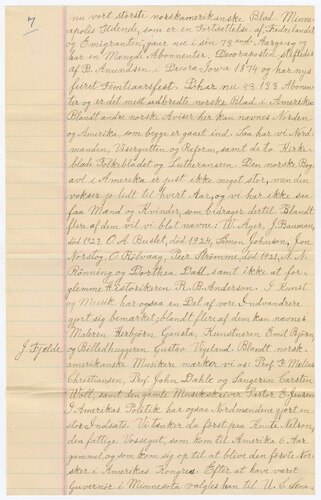 7
nu vort største norskamerikanske Blad. Minne-
apolis Tidende, som er en Fortsættelse af Fædrelandet
og Emigranten, gaar nu i sin 73nd Aargang og
har en Mængde Abonnenter. Decoraposten stiftedes
af B. Amundsen i Decora Iowa 1874 og har nys
feiret Femtiaarsfest. Bl. har nu 43,133 Abonnen-
ter og er det mest udbredte norske Blad i Amerika.
Blandt andre norske Aviser her kan nævnes Norden
og Amerika, som begge er gaaet ind. Saa har vi Nord-
manden, Visergutten og Reform, samt de to Kirke-
blade Folkebladet og Lutheraneren. Den norske Bog-
avl i Amerika er just ikke meget stor, men den
vokser jo lidt til hvert Aar, og vi har ikke saa
faa Mænd og Kvinder, som bidrager dertil. Blandt
flere af dem vil vi blot nævne: W. Ager, J. Bauman,
død 1923, O. A. Buslet, død 1924, Simon Johnson, Jon
Norstog, O. Rølvaag, Peer Strømme, død 1921, N. N.
Rönning og Dorthea Dahl, samt ikke at for-
glemme Historikeren R. B. Anderson. I Kunst
og Musik har ogsaa en Del af vore Indvandrere
gjort sig bemærket, blandt flere af dem kan nævnes
Malerin Herbjörn Gausta, Kunstneren Emil Björn
J. Fjelde
og Billedhuggeren Gustav Vigeland. Blandt norsk-
amerikanske Musikere mærker vi os: Prof. F. Melius
Christiansen, Prof. John Dahle og Sangeren Carsten
Woll, samt den gamle Musikskriver Pastor E. Jensen.
I Amerikas Politik har ogsaa Nordmændene gjort en
stor Indsats. Vi tænker da først paa Knute Nelson,
den fattige Vossegut, som kom til Amerika 6 Aar
gammel, og som kom sig op til at blive den første Nor-
sker i Amerikas Kongres. Efter at have været
Guvernör i Minnesota valgtes han til U. S. Sena-